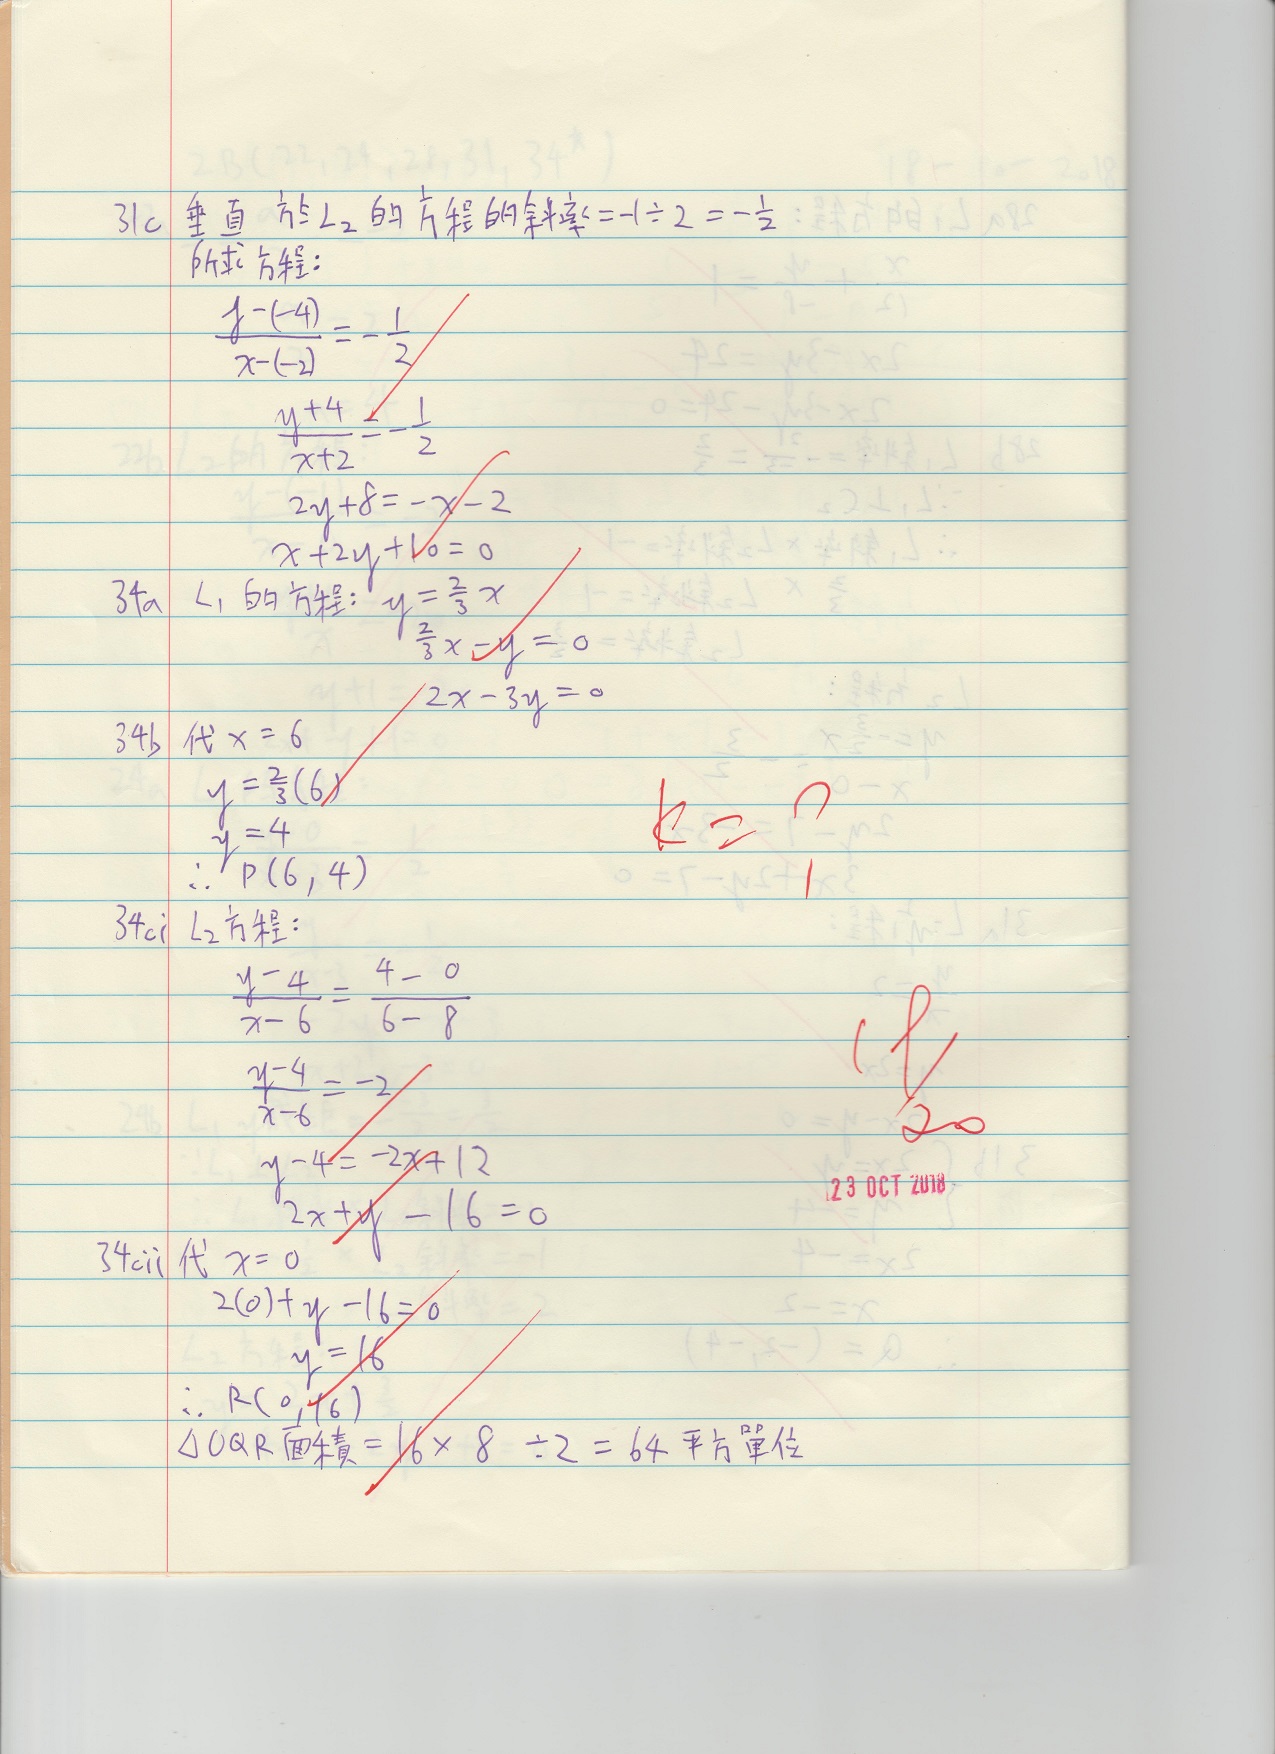 31c 垂直於L₂的方程的斜率=-1÷2=-1/2
所求方程:
(y-(-4))/(x-(-2)) = -1/2
(y+4)/(x+2) = -1/2
2y+8=-x-2
x+2y+10=0
34a L₁的方程: y=2/3 x
2/3 x-y=0
2x-3y=0
34b 代x=6
y=2/3(6)
y=4
∴ P(6,4)
k=?
34ci L₂方程:
(y-4)/(x-6) = (4-0)/(6-8)
(y-4)/(x-6) = -2
y-4=-2x+12
2x+y-16=0
20
23 OCT 2018
34cii 代x=0
2(0)+y-16=0
y=16
∴ R(0,16)
△OQR面積=16×8÷2=64平方單位